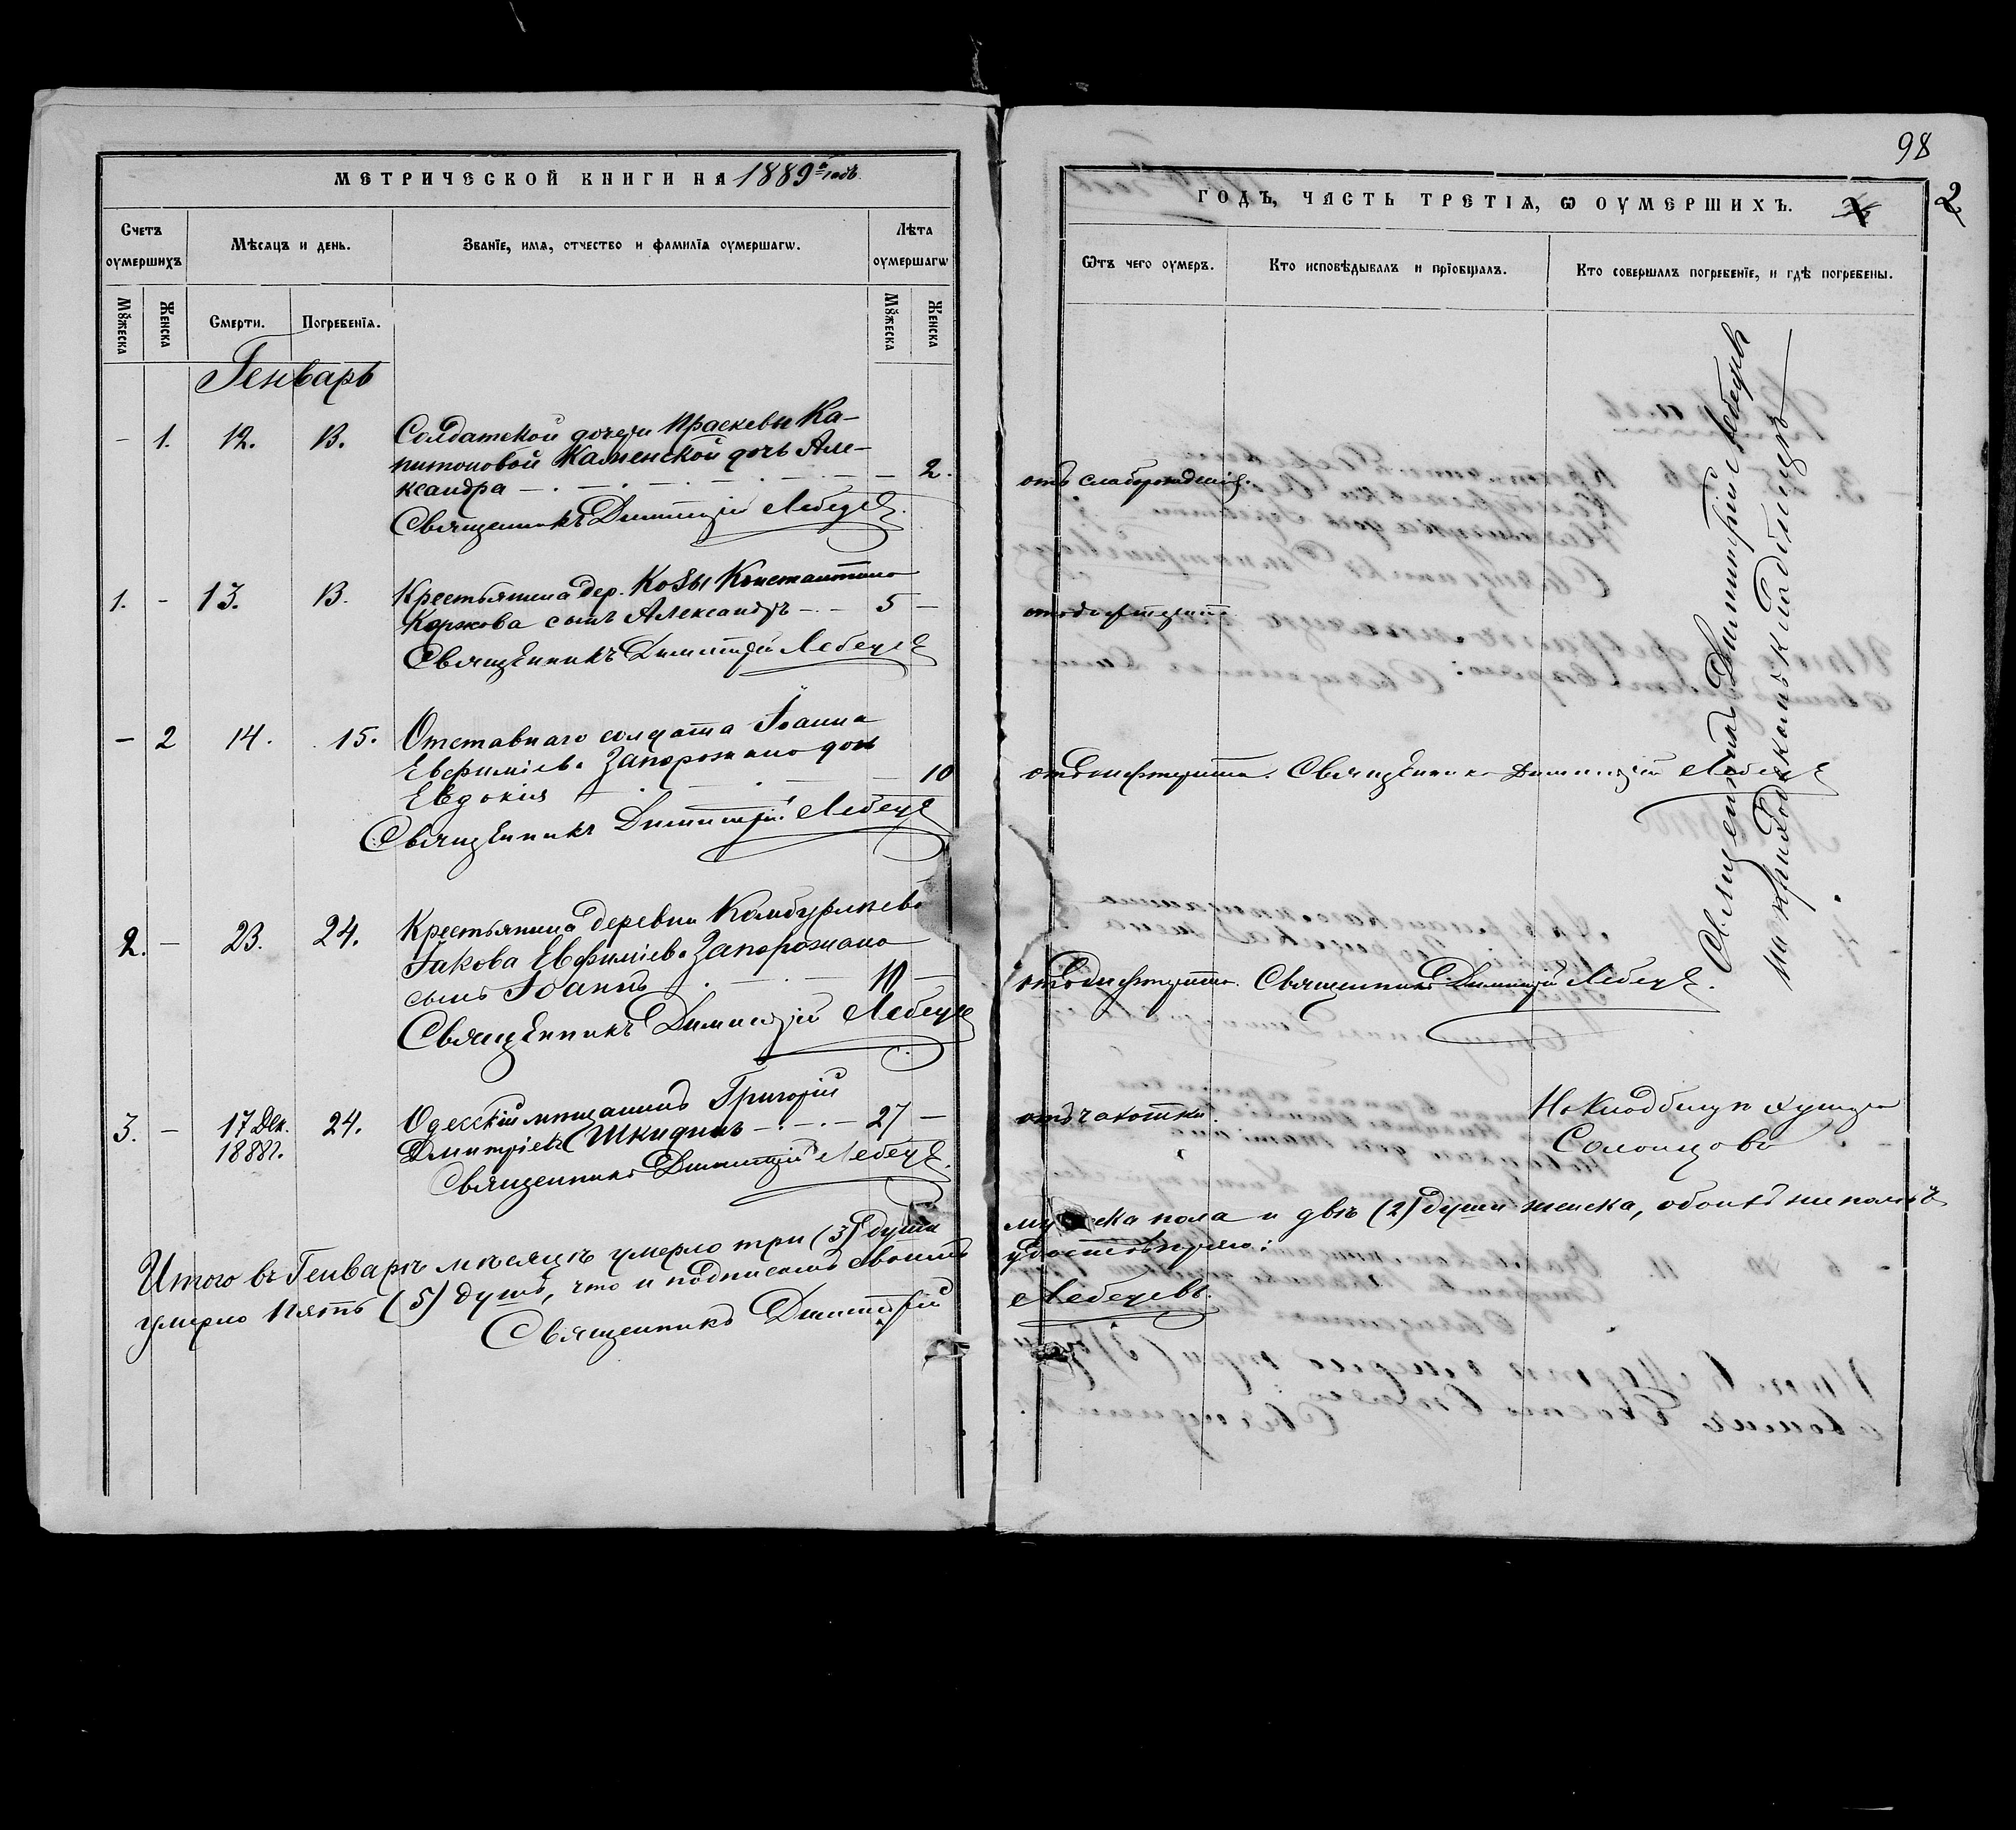 МЕТРИЧЕСКОЙ КНИГИ НА 1889й годъ.
Счетъ оумершихъ
Мѣсяцъ и день.
Званїе, имѧ, отчество и фамилїѧ оумершагѡ.
Лѣта оумершагѡ
Мꙋжеска
Женска
Смерти.
Погребенїѧ.
Мꙋжеска
Женска
Генварь
- 1. 12. 13.
Солдатской дочери Праскевы Ка-
питоновой Каменской дочь Але-
ксандра — 2.
Священникъ Димитрій Лебедевъ
1. - 13. 13.
Крестьянина дер. Козы Константина
Коржова сынъ Александръ — 5 —
Священникъ Димитрій Лебедевъ
- 2 14. 15.
Отставнаго солдата Іоанна
Евфиміева Запорожана дочь
Евдокія — 10
Священникъ Димитрій Лебедевъ
2. — 23. 24.
Крестьянина деревни Камбуринево
Іакова Евфиміева Запорожана
сынъ Іоаннъ — 10 —
Священникъ Димитрій Лебедевъ
3. — 17 Дек. 1888г. 24.
Одесскій мѣщанинъ Григорій
Димитріевъ Шкидинъ — 27 —
Священникъ Димитрій Лебедевъ
Итого въ Генварѣ мѣсяцѣ умерло три (3) души
умерло пять (5) душъ, что и подписомъ своимъ
Священникъ Димитрій
98
2
ГОДЪ, ЧАСТЬ ТРЕТІѦ, Ѡ ОУМЕРШИХЪ.
Ѿтъ чего оумеръ.
Кто исповѣдывалъ и прїобщалъ.
Кто совершалъ погребенїе, и гдѣ погребены.
отъ слаборожденія.
отъ дифтерита
отъ дифтерита. Священникъ Димитрій Лебедевъ
отъ дифтерита. Священникъ Димитрій Лебедевъ.
отъ чахотки.
Священникъ Димитрій Лебедевъ
на приходскомъ кладбищѣ
На кладбищѣ хутора
Солонцова
мужеска пола и двѣ (2) души женска, обоихъ же половъ
удостовѣряю:
Лебедевъ.